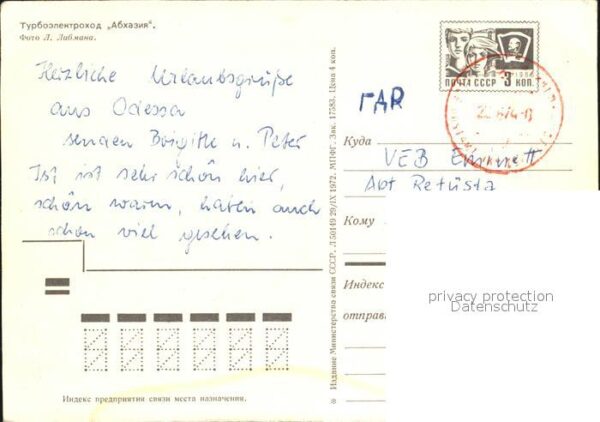 Турбоэлектроход „Абхазия".
Фото Л. Либмана.
Herzliche Urlaubsgrüße
aus Odessa
senden Brigitte u. Peter
Ist ist sehr schön hier,
schön warm, haben auch
schon viel gesehen.
Индекс предприятия связи места назначения.
Издание Министерства связи СССР. Л 50149 29/IX 1972. МПФГ. Зак. 17583. Цена 4 коп.
ПОЧТА СССР 3 КОП.
1966
ГДР
Куда
VEB
Abt Retusta
Кому
Индекс
отправ
privacy protection
Datenschutz